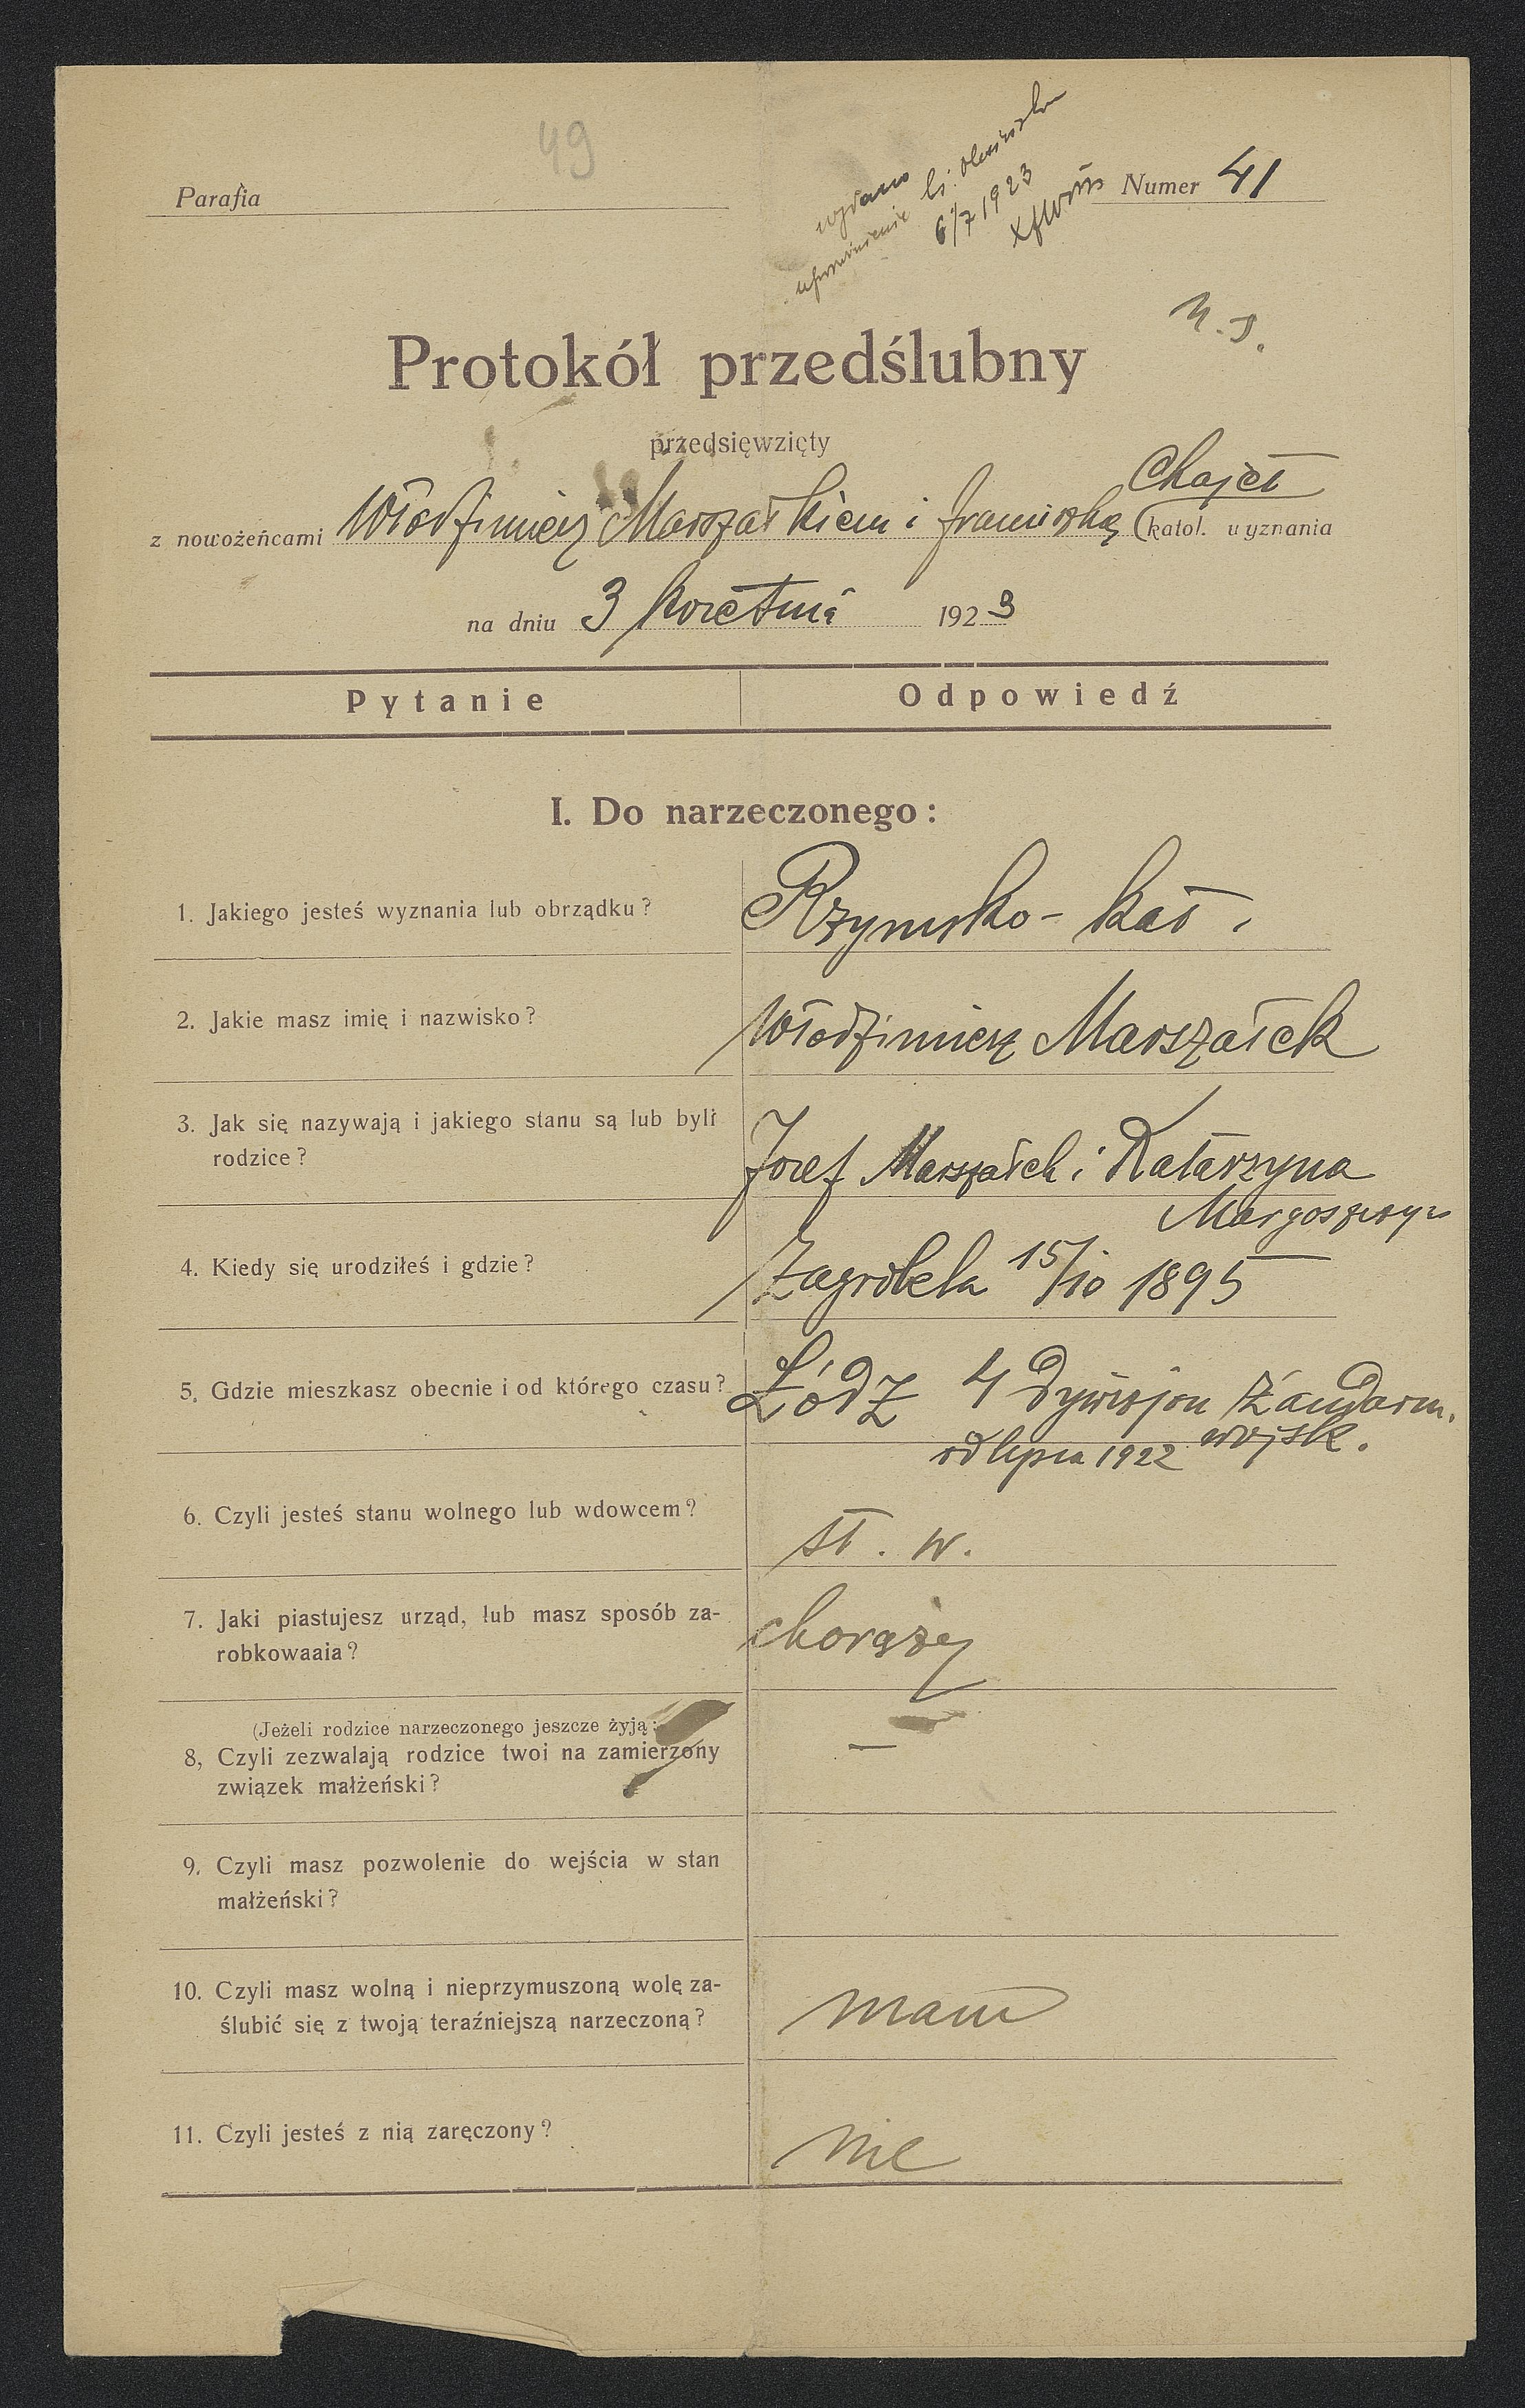 49
Parafia
wydano
upomnienie
6/7 1923
Numer 41
N. S.
Protokół przedślubny
przedsięwzięty
Chajet
z nowożeńcami Włodzimierz Marszałkiem i Franciszką (katol. wyznania
na dniu 3 kwietnia 1923
Pytanie Odpowiedź
I. Do narzeczonego:
1. Jakiego jesteś wyznania lub obrządku? Rzymsko-kat.
2. Jakie masz imię i nazwisko? Włodzimierz Marszałek
3. Jak się nazywają i jakiego stanu są lub byli
rodzice? Józef Marszałek i Katarzyna
4. Kiedy się urodziłeś i gdzie? Zagrobela 15/10 1895
5. Gdzie mieszkasz obecnie i od którego czasu? Łódź 4 Dywizjon Żandarm.
wojsk.
od lipca 1922
6. Czyli jesteś stanu wolnego lub wdowcem? st. w.
7. Jaki piastujesz urząd, lub masz sposób za-
robkowaaia? chorąży
(Jeżeli rodzice narzeczonego jeszcze żyją:
8, Czyli zezwalają rodzice twoi na zamierzony —
związek małżeński?
9. Czyli masz pozwolenie do wejścia w stan
małżeński?
10. Czyli masz wolną i nieprzymuszoną wolę za-
ślubić się z twoją teraźniejszą narzeczoną? mam
11. Czyli jesteś z nią zaręczony? nie